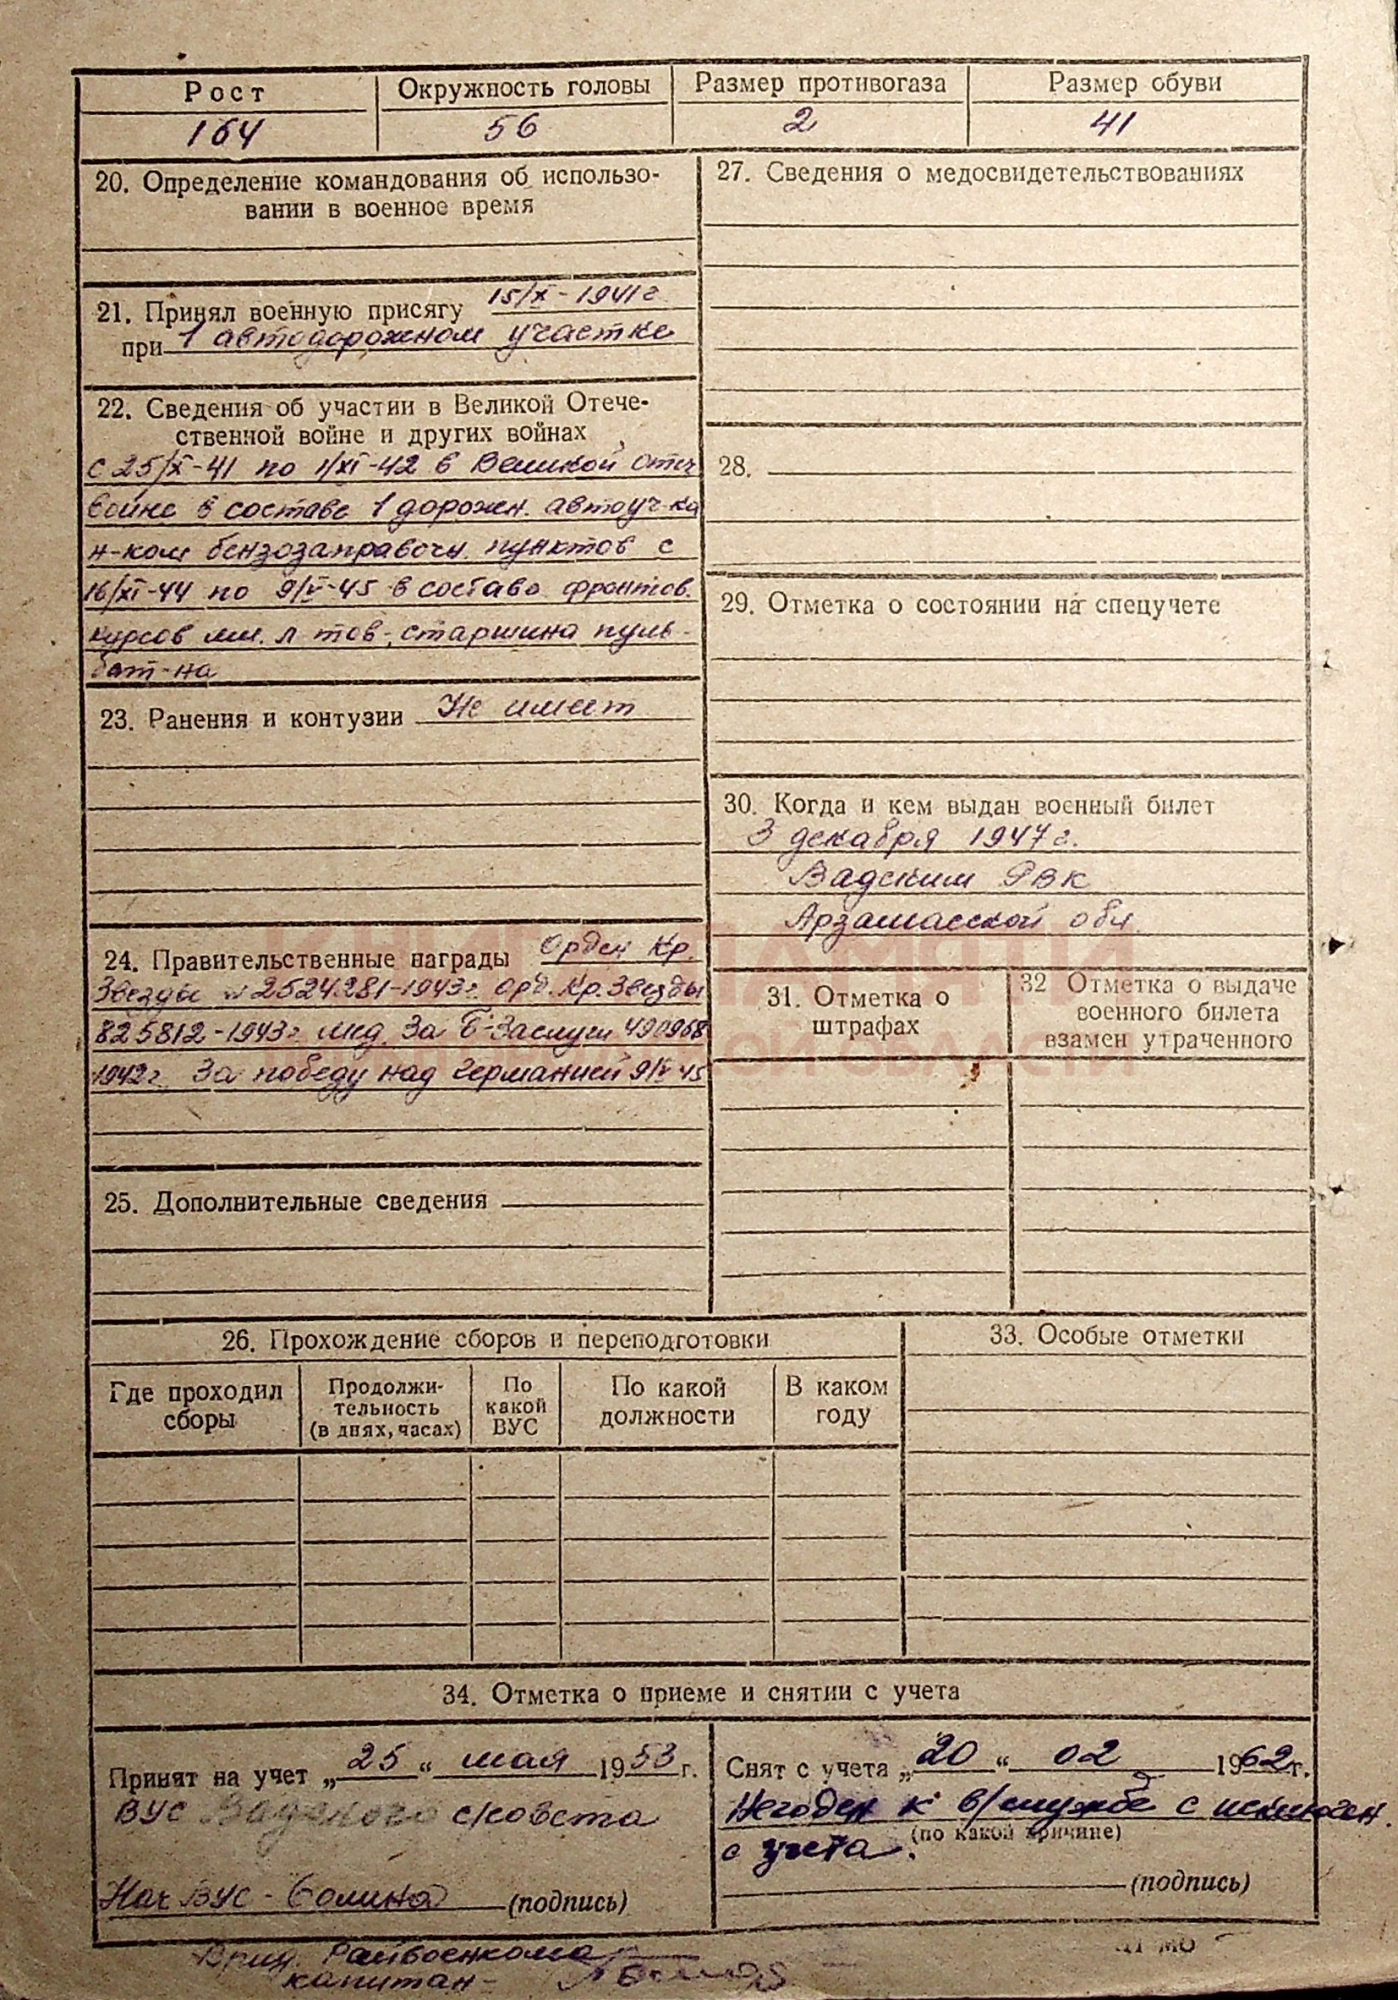 Рост
Окружность головы
Размер противогаза
Размер обуви
164
56
2
41
20. Определение командования об использо-
вании в военное время
21. Принял военную присягу 15/X-1941г
при 1 автодорожном участке
22. Сведения об участии в Великой Отече-
ственной войне и других войнах
с 25/X-41 по 1/XI-42 в Великой отеч
войне в составе 1 дорожн. автоуч-ка
н-ком бензозаправочн. пунктов с
16/XI-44 по 9/V-45 в составе фронтов.
курсов мл. л-тов-, старшина пуль-
бат-на
23. Ранения и контузии Не имеет
24. Правительственные награды Орден Кр.
Звезды № 2524281-1943г. орд. Кр. Звезды
825812-1943г. мед. За Б-Заслуги 490968
1942г. За победу над Германией 9/V 45
25. Дополнительные сведения
27. Сведения о медосвидетельствованиях
28.
29. Отметка о состоянии на спецучете
30. Когда и кем выдан военный билет
3 декабря 1947г.
Вадским РВК
Арзамасской обл.
31. Отметка о
штрафах
32 Отметка о выдаче
военного билета
взамен утраченного
КНИГА ПАМЯТИ
ОБЛАСТИ
26. Прохождение сборов и переподготовки
Где проходил
сборы
Продолжи-
тельность
(в днях, часах)
По
какой
ВУС
По какой
должности
В каком
году
33. Особые отметки
34. Отметка о приеме и снятии с учета
Принят на учет „25“ мая 1953г.
ВУС Вадского с/совета
Нач ВУС - (подпись)
Снят с учета „20“ 02 1962г.
Негоден к в/службе с исключен.
(по какой причине)
с учета.
(подпись)
Врид. Райвоенкома
капитан -